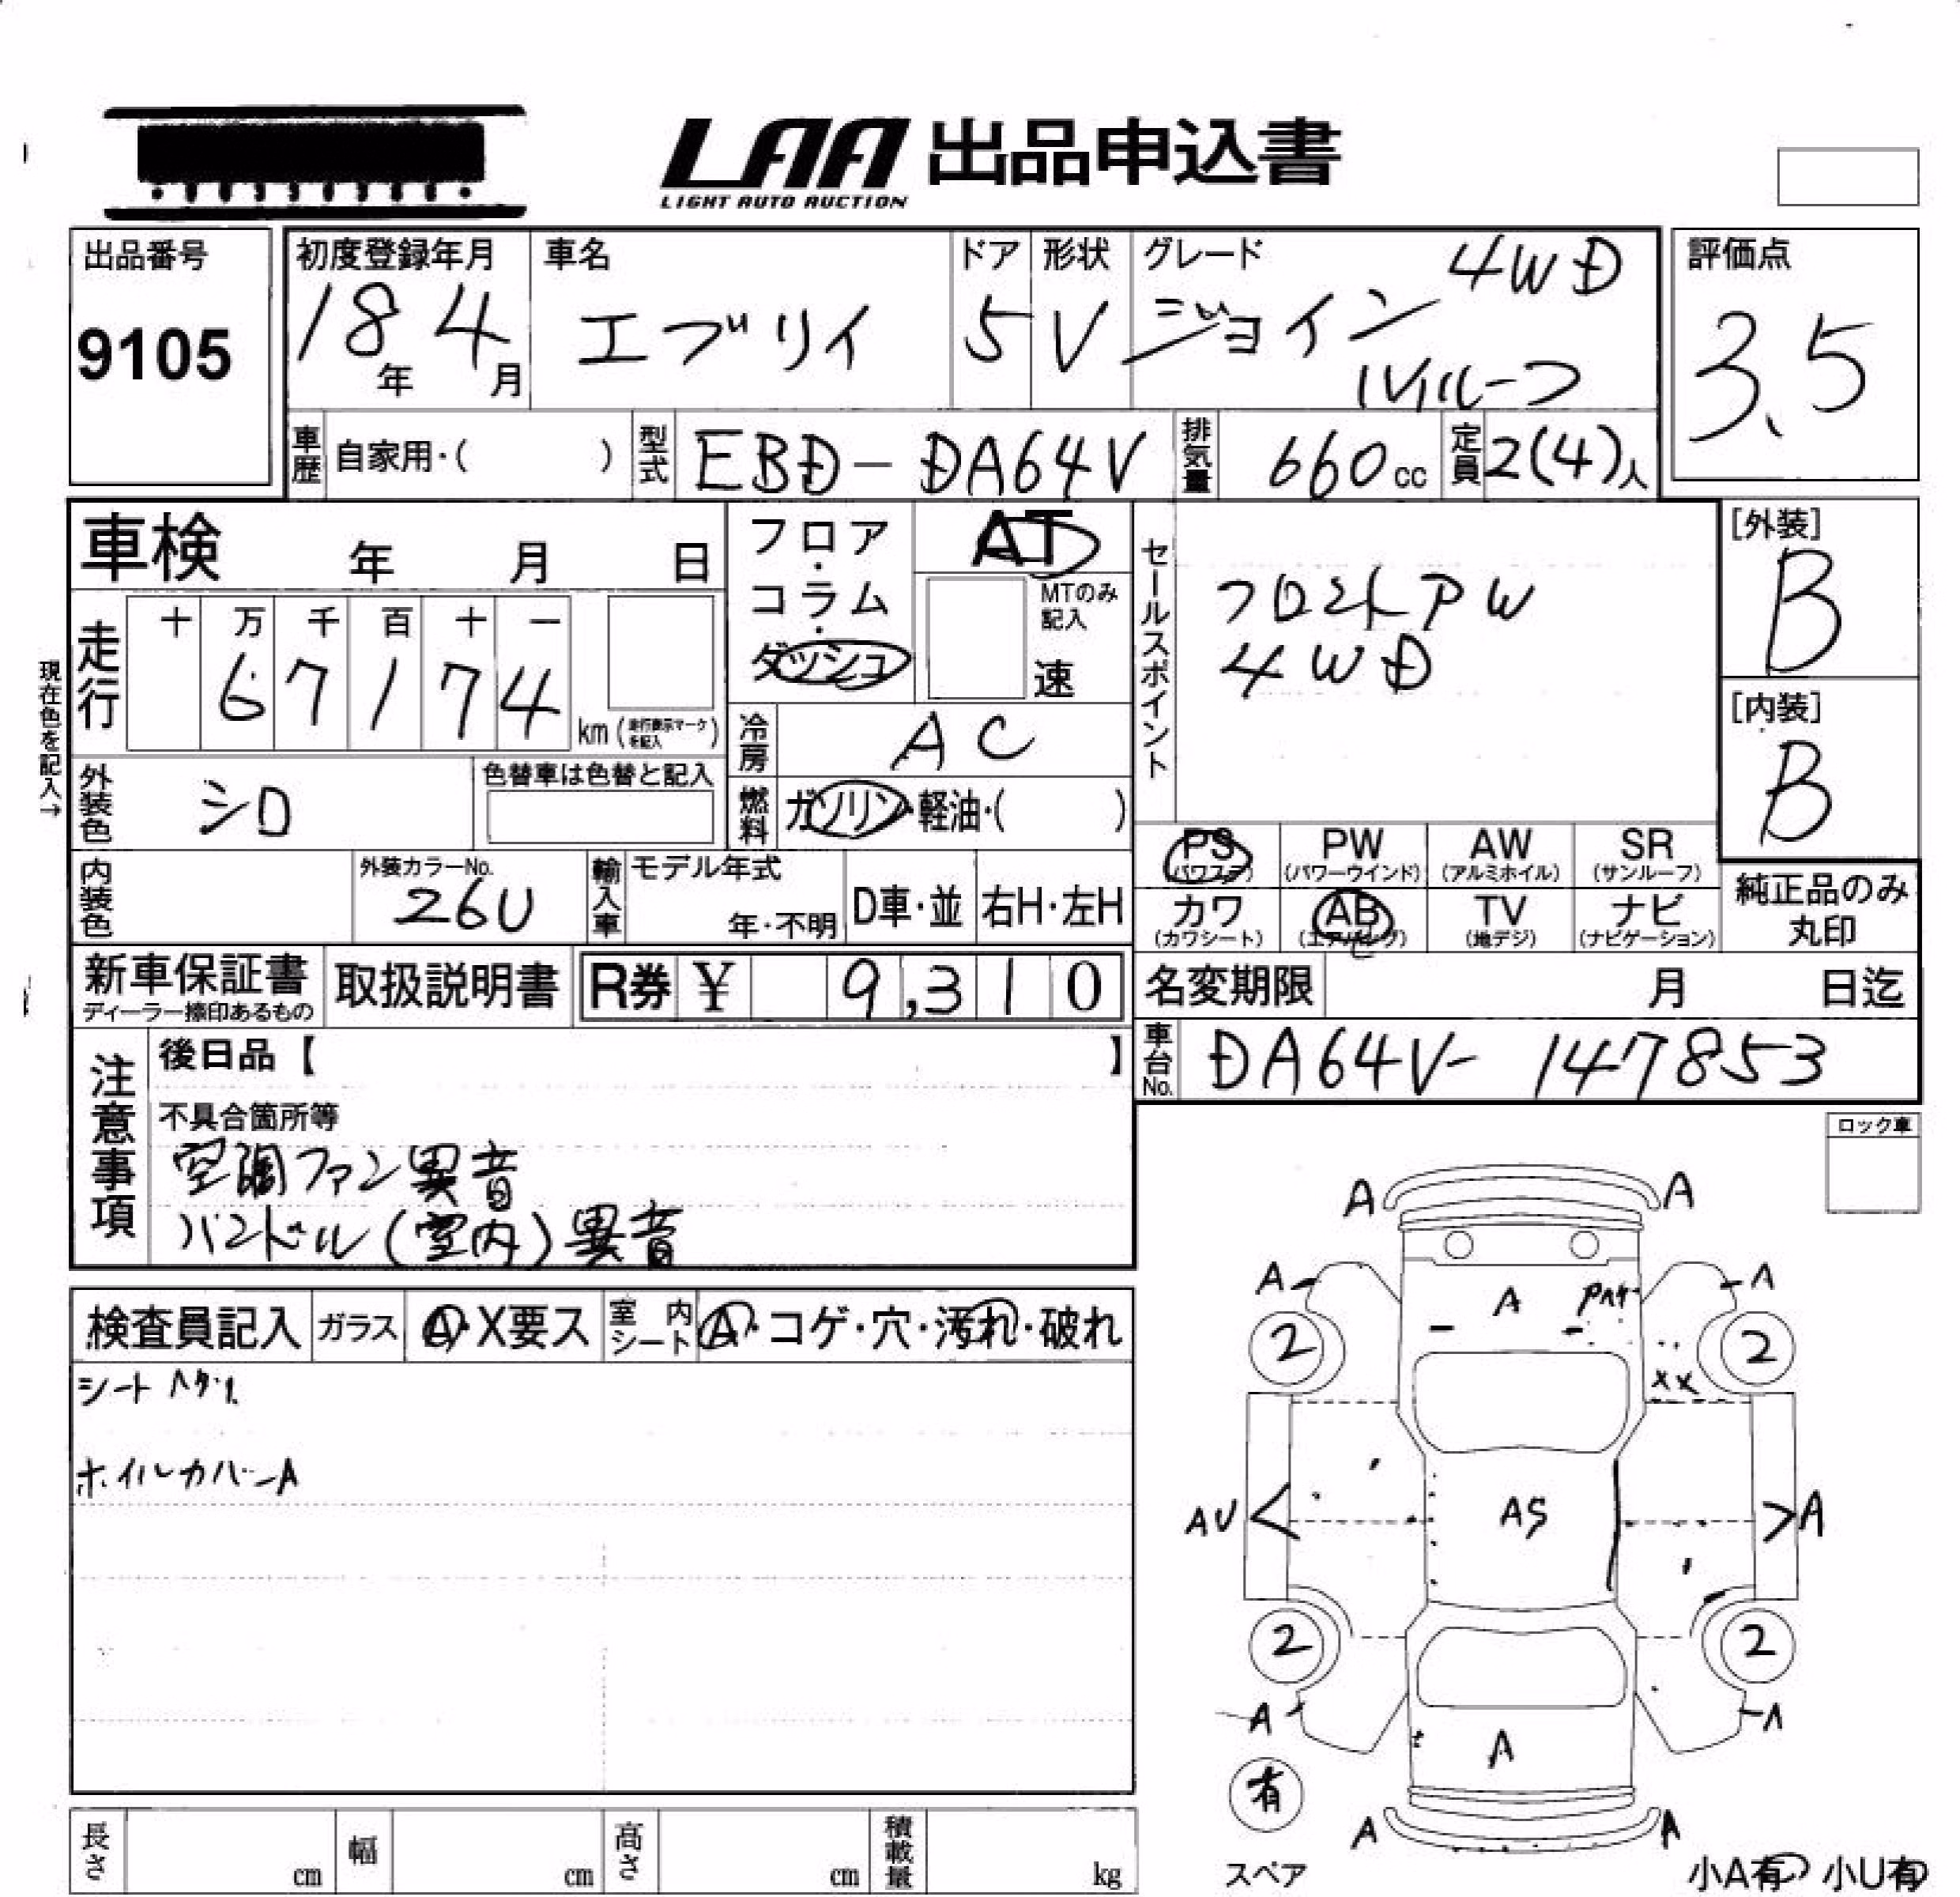 LAA 出品申込書
LIGHT AUTO AUCTION
出品番号
9105
初度登録年月
18年 4月
車名
エブリイ
ドア
5
形状
V
グレード
4WD
ジョイン
ハイルーフ
評価点
3.5
車歴 自家用・( )
型式 EBD-DA64V
排気量 660cc
定員 2(4)人
車検 年 月 日
フロア・コラム・ダッシュ
AT
MTのみ記入
速
現在色を記入→
走行
十 万 千 百 十 一
6 7 1 7 4
km (走行表示マークを記入)
冷房 AC
外装色 シロ
色替車は色替と記入
燃料 ガソリン・軽油・( )
セールスポイント
フロントPW
4WD
[外装]
B
[内装]
B
PS (パワステ)
PW (パワーウインド)
AW (アルミホイル)
SR (サンルーフ)
カワ (カワシート)
AB (エアバッグ)
TV (地デジ)
ナビ (ナビゲーション)
純正品のみ丸印
内装色
外装カラーNo.
26U
輸入車
モデル年式
年・不明
D車・並
右H・左H
新車保証書
ディーラー捺印あるもの
取扱説明書
R券 ¥ 9,310
名変期限 月 日迄
車台No. DA64V-147853
注意事項
後日品【 】
不具合箇所等
空調ファン異音
ハンドル(室内)異音
ロック車
検査員記入
ガラス
A・X要ス
室内シート
A・コゲ・穴・汚れ・破れ
シート
ホイルカバーA
A A
A A
A
2 2
XX
AU AS A
2 2
A A
A
有
A A
スペア
小A有 小U有
長さ cm
幅 cm
高さ cm
積載量 kg